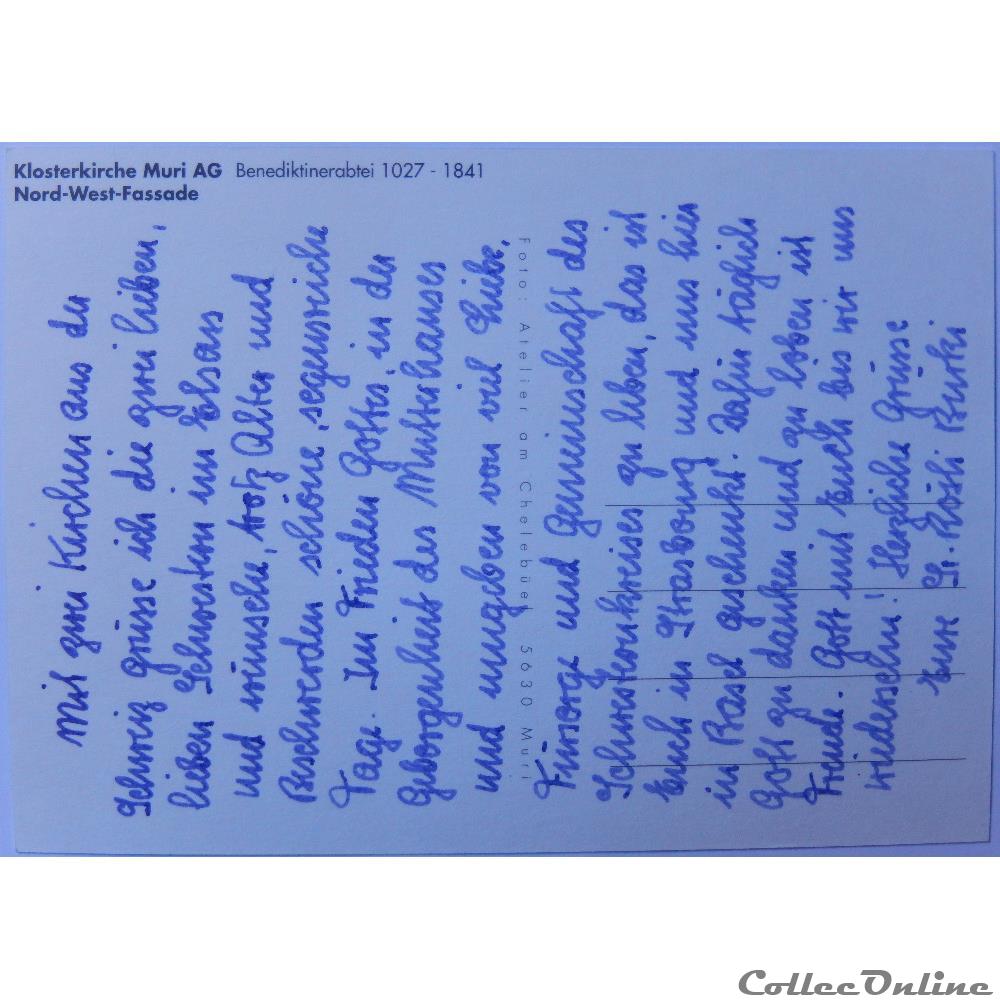 Klosterkirche Muri AG Benediktinerabtei 1027 - 1841
Nord-West-Fassade
Mit zwei Kirchen aus der
Schweiz grüsse ich die zwei lieben,
lieben Schwestern im Elsass
und wünsche, trotz Alter und
Beschwerden schöne, segensreiche
Tage. Im Frieden Gottes, in der
Geborgenheit des Mutterhauses
und umgeben von viel Liebe,
Foto: Atelier am Chelebüel 5630 Muri
Fürsorge und Gemeinschaft des
Schwesternkreises zu leben, das ist
Euch in Strasbourg und uns hier
in Basel geschenkt. Dafür täglich
Gott zu danken und zu loben ist
Freude. Gott mit Euch bis wir uns
wiedersehn! Herzliche Grüsse
Eure Sr. Rösli Bürki
CollecOnline